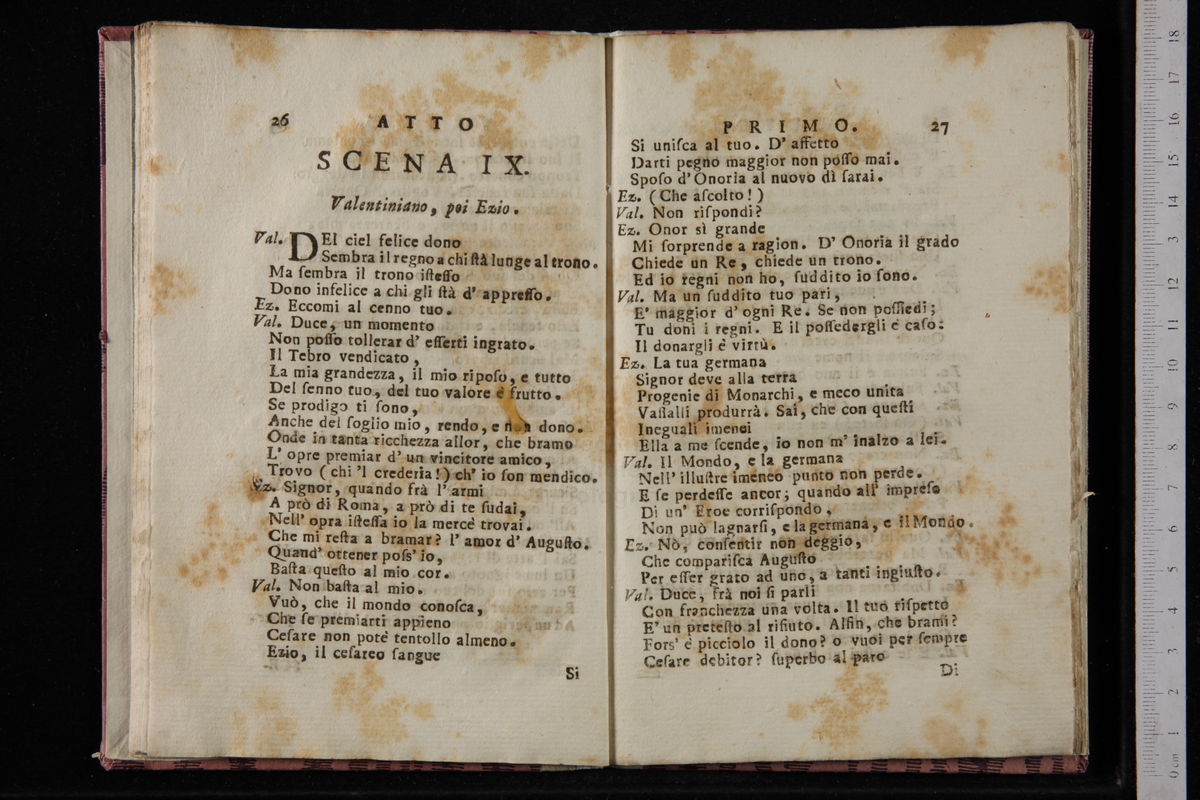 26
ATTO
SCENA IX.
Valentiniano, poi Ezio.
Val. DEl ciel felice dono
Sembra il regno a chi ſtà lunge al trono.
Ma ſembra il trono iſteſſo
Dono infelice a chi gli ſtà d' appreſſo.
Ez. Eccomi al cenno tuo.
Val. Duce, un momento
Non poſſo tollerar d' eſſerti ingrato.
Il Tebro vendicato,
La mia grandezza, il mio ripoſo, e tutto
Del ſenno tuo, del tuo valore è frutto.
Se prodigo ti ſono,
Anche del ſoglio mio, rendo, e non dono.
Onde in tanta ricchezza allor, che bramo
L' opre premiar d' un vincitore amico,
Trovo (chi 'l crederia!) ch' io ſon mendico.
Ez. Signor, quando frà l' armi
A prò di Roma, a prò di te ſudai,
Nell' opra iſteſſa io la mercè trovai.
Che mi reſta a bramar? l' amor d' Auguſto.
Quand' ottener poſs' io,
Baſta queſto al mio cor.
Val. Non baſta al mio.
Vuò, che il mondo conoſca,
Che ſe premiarti appieno
Ceſare non potè tentollo almeno.
Ezio, il ceſareo ſangue
Si
PRIMO.
27
Si uniſca al tuo. D' affetto
Darti pegno maggior non poſſo mai.
Spoſo d' Onoria al nuovo dì ſarai.
Ez. (Che aſcolto!)
Val. Non riſpondi?
Ez. Onor sì grande
Mi ſorprende a ragion. D' Onoria il grado
Chiede un Re, chiede un trono.
Ed io regni non ho, ſuddito io ſono.
Val. Ma un ſuddito tuo pari,
E' maggior d' ogni Re. Se non poſſiedi;
Tu doni i regni. E il poſſedergli è caſo:
Il donargli è virtù.
Ez. La tua germana
Signor deve alla terra
Progenie di Monarchi, e meco unita
Vaſſalli produrrà. Sai, che con queſti
Ineguali imenei
Ella a me ſcende, io non m' inalzo a lei.
Val. Il Mondo, e la germana
Nell' illuſtre imeneo punto non perde.
E ſe perdeſſe ancor; quando all' impreſe
Di un' Eroe corriſpondo,
Non può lagnarſi, e la germana, e il Mondo.
Ez. Nò, conſentir non deggio,
Che compariſca Auguſto
Per eſſer grato ad uno, a tanti ingiuſto.
Val. Duce, frà noi ſi parli
Con franchezza una volta. Il tuo riſpetto
E' un preteſto al rifiuto. Alfin, che brami?
Fors' è picciolo il dono? o vuoi per ſempre
Ceſare debitor? ſuperbo al paro
Di